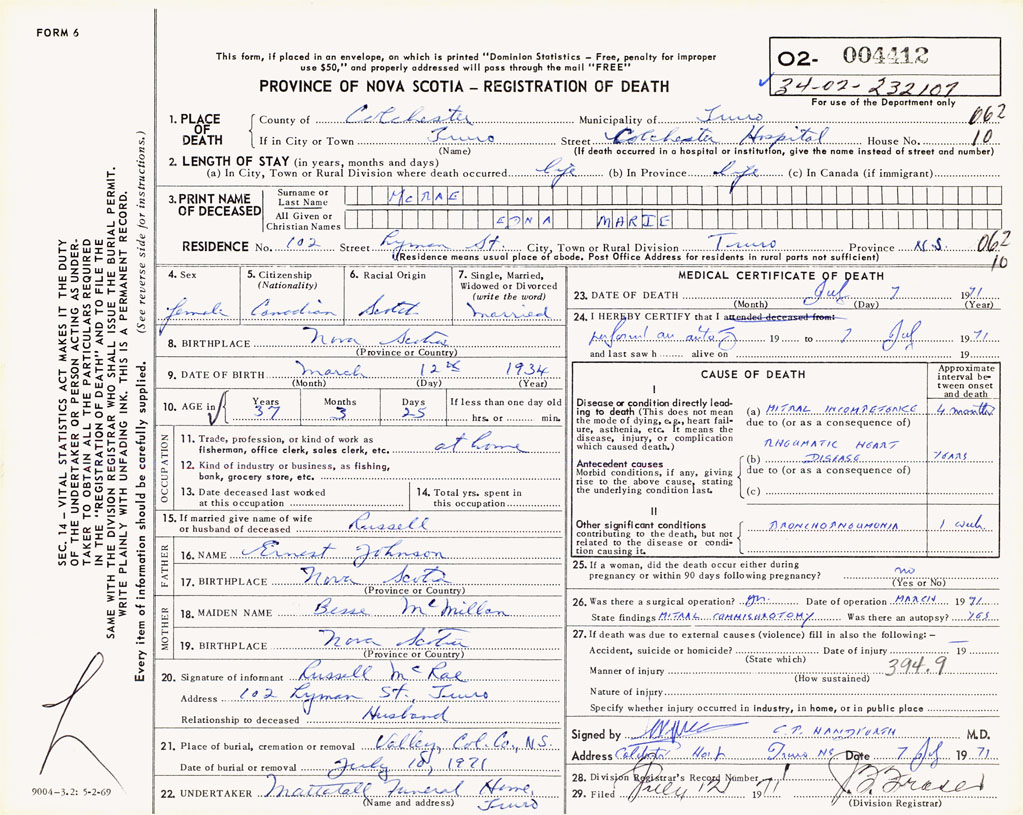 FORM 6
This form, if placed in an envelope, on which is printed "Dominion Statistics – Free, penalty for improper
use $50," and properly addressed will pass through the mail "FREE"
PROVINCE OF NOVA SCOTIA – REGISTRATION OF DEATH
02- 004412
34-02-232107
For use of the Department only
1. PLACE OF DEATH
County of Colchester Municipality of Truro 062
If in City or Town Truro Street Colchester Hospital House No. 10
(Name) (If death occurred in a hospital or institution, give the name instead of street and number)
2. LENGTH OF STAY (in years, months and days)
(a) In City, Town or Rural Division where death occurred life (b) In Province life (c) In Canada (if immigrant)
3. PRINT NAME OF DECEASED
Surname or Last Name McRAE
All Given or Christian Names EDNA MARIE
RESIDENCE No. 102 Street Lyman St. City, Town or Rural Division Truro Province N.S. 062
10
(Residence means usual place of abode. Post Office Address for residents in rural parts not sufficient)
4. Sex
female
5. Citizenship (Nationality)
Canadian
6. Racial Origin
Scotch
7. Single, Married, Widowed or Divorced (write the word)
married
8. BIRTHPLACE Nova Scotia
(Province or Country)
9. DATE OF BIRTH March 12th 1934
(Month) (Day) (Year)
10. AGE in
Years Months Days If less than one day old
37 3 25 hrs. or min.
OCCUPATION
11. Trade, profession, or kind of work as fisherman, office clerk, sales clerk, etc. at home
12. Kind of industry or business, as fishing, bank, grocery store, etc.
13. Date deceased last worked at this occupation
14. Total yrs. spent in this occupation
15. If married give name of wife or husband of deceased Russell
FATHER
16. NAME Ernest Johnson
17. BIRTHPLACE Nova Scotia
(Province or Country)
MOTHER
18. MAIDEN NAME Besse McMillan
19. BIRTHPLACE Nova Scotia
(Province or Country)
20. Signature of informant Russell McRae
Address 102 Lyman St., Truro
Relationship to deceased Husband
21. Place of burial, cremation or removal Valley, Col. Co., N.S.
Date of burial or removal July 10, 1971
22. UNDERTAKER Mattatall Funeral Home,
(Name and address) Truro
MEDICAL CERTIFICATE OF DEATH
23. DATE OF DEATH Jul 7 1971
(Month) (Day) (Year)
24. I HEREBY CERTIFY that I attended deceased from:
perform an 19 to 7 Jul 1971
and last saw h alive on 19
CAUSE OF DEATH
Approximate interval between onset and death
I
Disease or condition directly leading to death (This does not mean the mode of dying, e.g., heart failure, asthenia, etc. It means the disease, injury, or complication which caused death.)
(a) MITRAL INCOMPETENCE 4 months
due to (or as a consequence of)
RHEUMATIC HEART
(b) DISEASE YEARS
Antecedent causes
Morbid conditions, if any, giving rise to the above cause, stating the underlying condition last.
due to (or as a consequence of)
(c)
II
Other significant conditions contributing to the death, but not related to the disease or condition causing it.
BRONCHOPNEUMONIA 1 week
25. If a woman, did the death occur either during pregnancy or within 90 days following pregnancy? no
(Yes or No)
26. Was there a surgical operation? Date of operation MARCH 1971
State findings MITRAL COMMISUROTOMY Was there an autopsy? YES
27. If death was due to external causes (violence) fill in also the following:–
Accident, suicide or homicide? Date of injury 19
(State which)
394.9
Manner of injury
(How sustained)
Nature of injury
Specify whether injury occurred in industry, in home, or in public place
Signed by C.P. HANDFORTH M.D.
Address Colchester Hosp Truro NS Date 7 Jul 1971
28. Division Registrar's Record Number
29. Filed July 12 1971 J. F. Fraser
(Division Registrar)
SEC. 14 – VITAL STATISTICS ACT MAKES IT THE DUTY
OF THE UNDERTAKER OR PERSON ACTING AS UNDER-
TAKER TO OBTAIN ALL THE PARTICULARS REQUIRED
IN THE "REGISTRATION OF DEATH" AND TO FILE THE
SAME WITH THE DIVISION REGISTRAR WHO SHALL ISSUE THE BURIAL PERMIT.
WRITE PLAINLY WITH UNFADING INK. THIS IS A PERMANENT RECORD.
Every item of information should be carefully supplied. (See reverse side for instructions.)
9004-3.2: 5-2-69